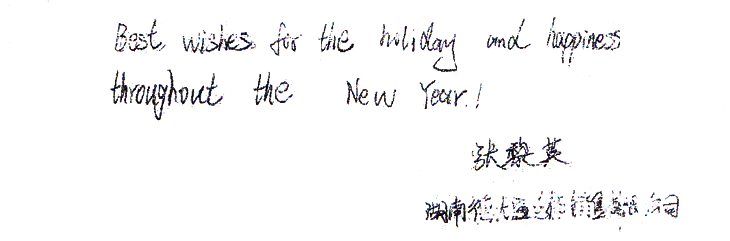 Best wishes for the holiday and happiness
throughout the New Year!
张黎英
湖南德大 销售 公司